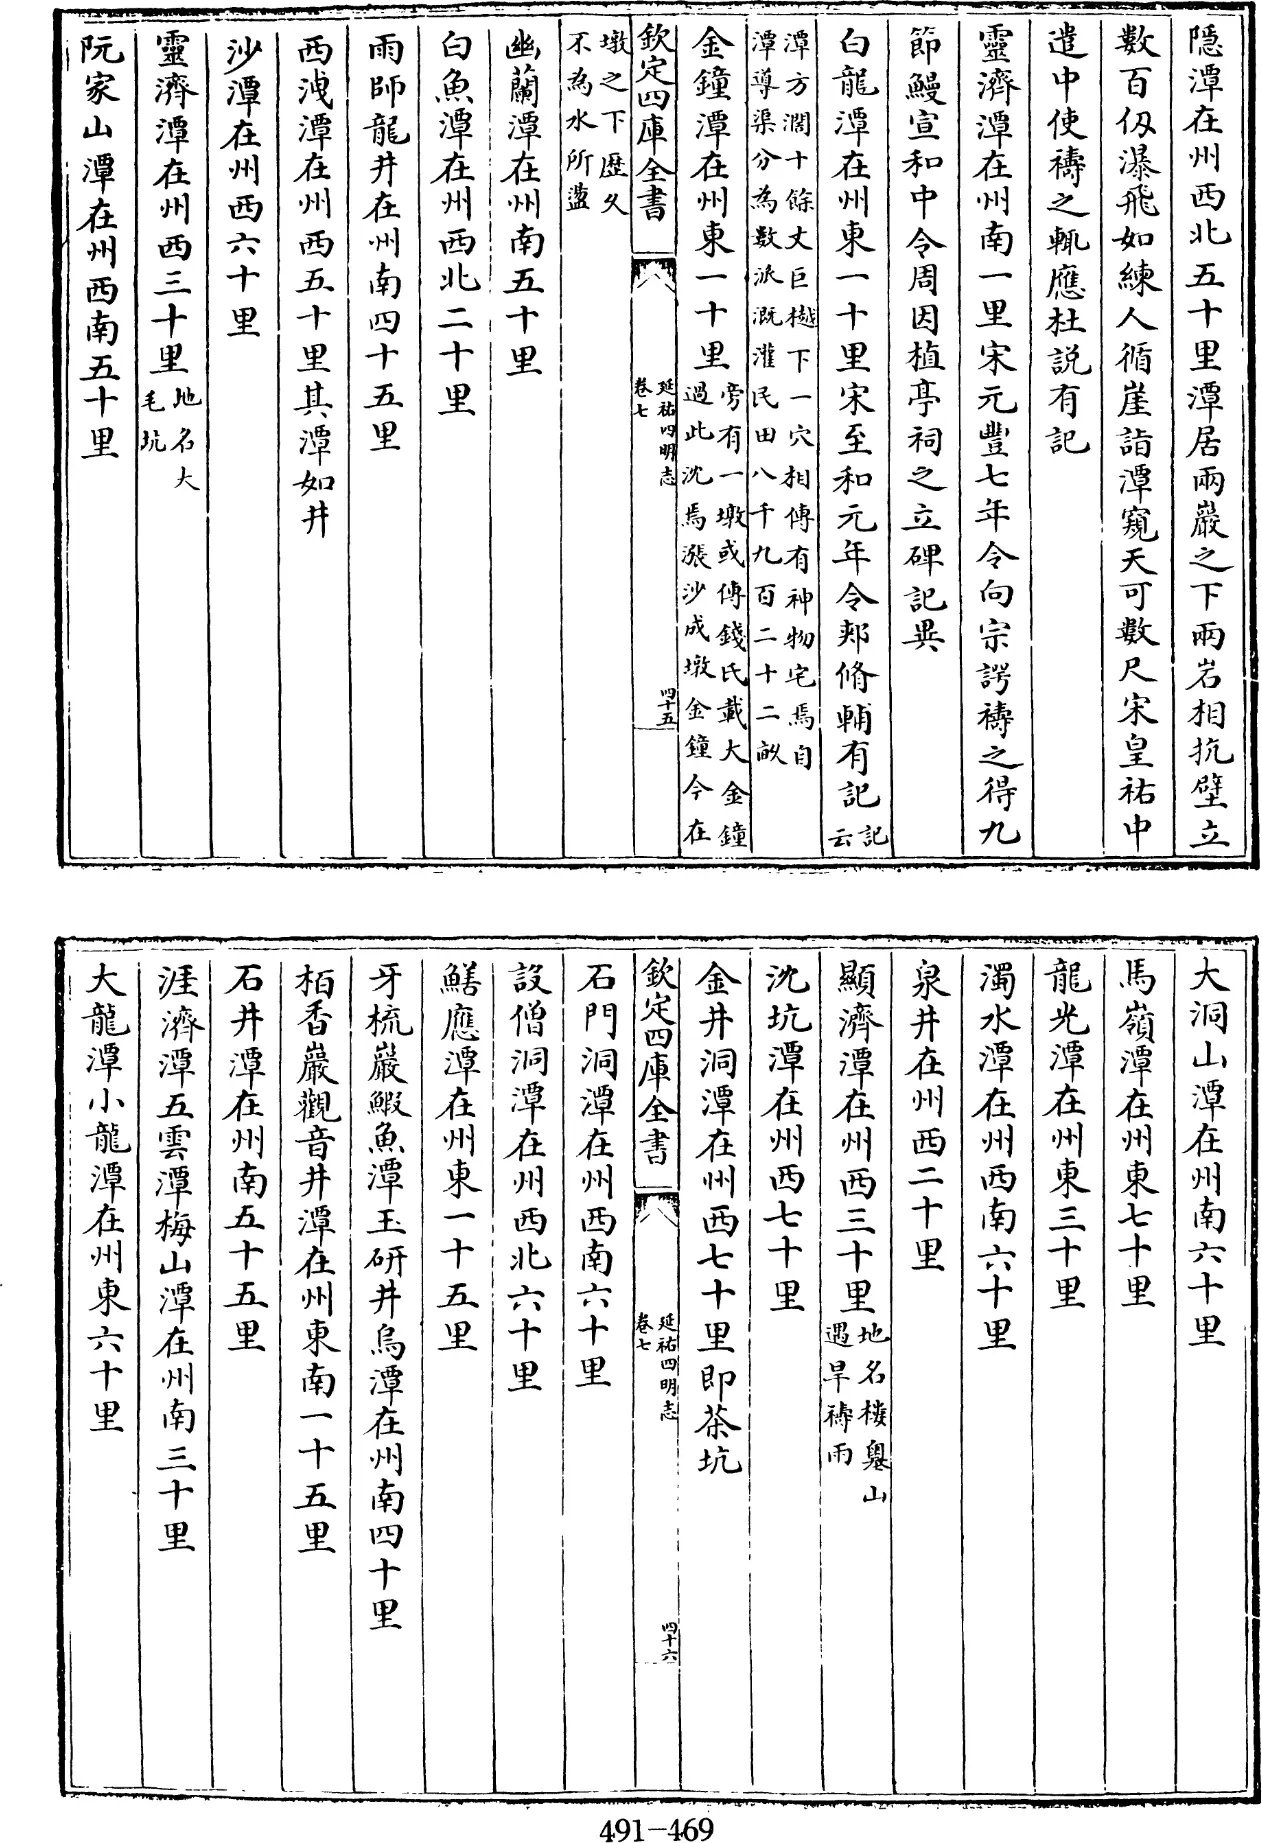 隠潭在州西北五十里潭居兩巖之下兩岩相抗壁立
數百仭瀑飛如練人循崖詣潭窺天可數尺宋皇祐中
遣中使禱之輒應杜説有記
靈濟潭在州南一里宋元豐七年令向宗諤禱之得九
節鰻宣和中令周因植亭祠之立碑記異
白龍潭在州東一十里宋至和元年令郟脩輔有記記云
潭方濶十餘丈巨樾下一穴相傳有神物宅焉自
潭導渠分為數派溉灌民田八千九百二十二畝
金鐘潭在州東一十里旁有一墩或傳錢氏載大金鐘
過此沈焉漲沙成墩金鐘今在
欽定四庫全書
延祐四明志
卷七
四十五
墩之下歷久
不為水所盪
幽蘭潭在州南五十里
白魚潭在州西北二十里
雨師龍井在州南四十五里
西洩潭在州西五十里其潭如井
沙潭在州西六十里
靈濟潭在州西三十里地名大
毛坑
阮家山潭在州西南五十里
大洞山潭在州南六十里
馬嶺潭在州東七十里
龍光潭在州東三十里
濁水潭在州西南六十里
泉井在州西二十里
顯濟潭在州西三十里地名棲鳧山
遇旱禱雨
沈坑潭在州西七十里
金井洞潭在州西七十里即茶坑
欽定四庫全書
延祐四明志
卷七
四十六
石門洞潭在州西南六十里
設僧洞潭在州西北六十里
鱔應潭在州東一十五里
牙梳巖鰕魚潭玉研井烏潭在州南四十里
栢香巖觀音井潭在州東南一十五里
石井潭在州南五十五里
涯濟潭五雲潭梅山潭在州南三十里
大龍潭小龍潭在州東六十里
491-469